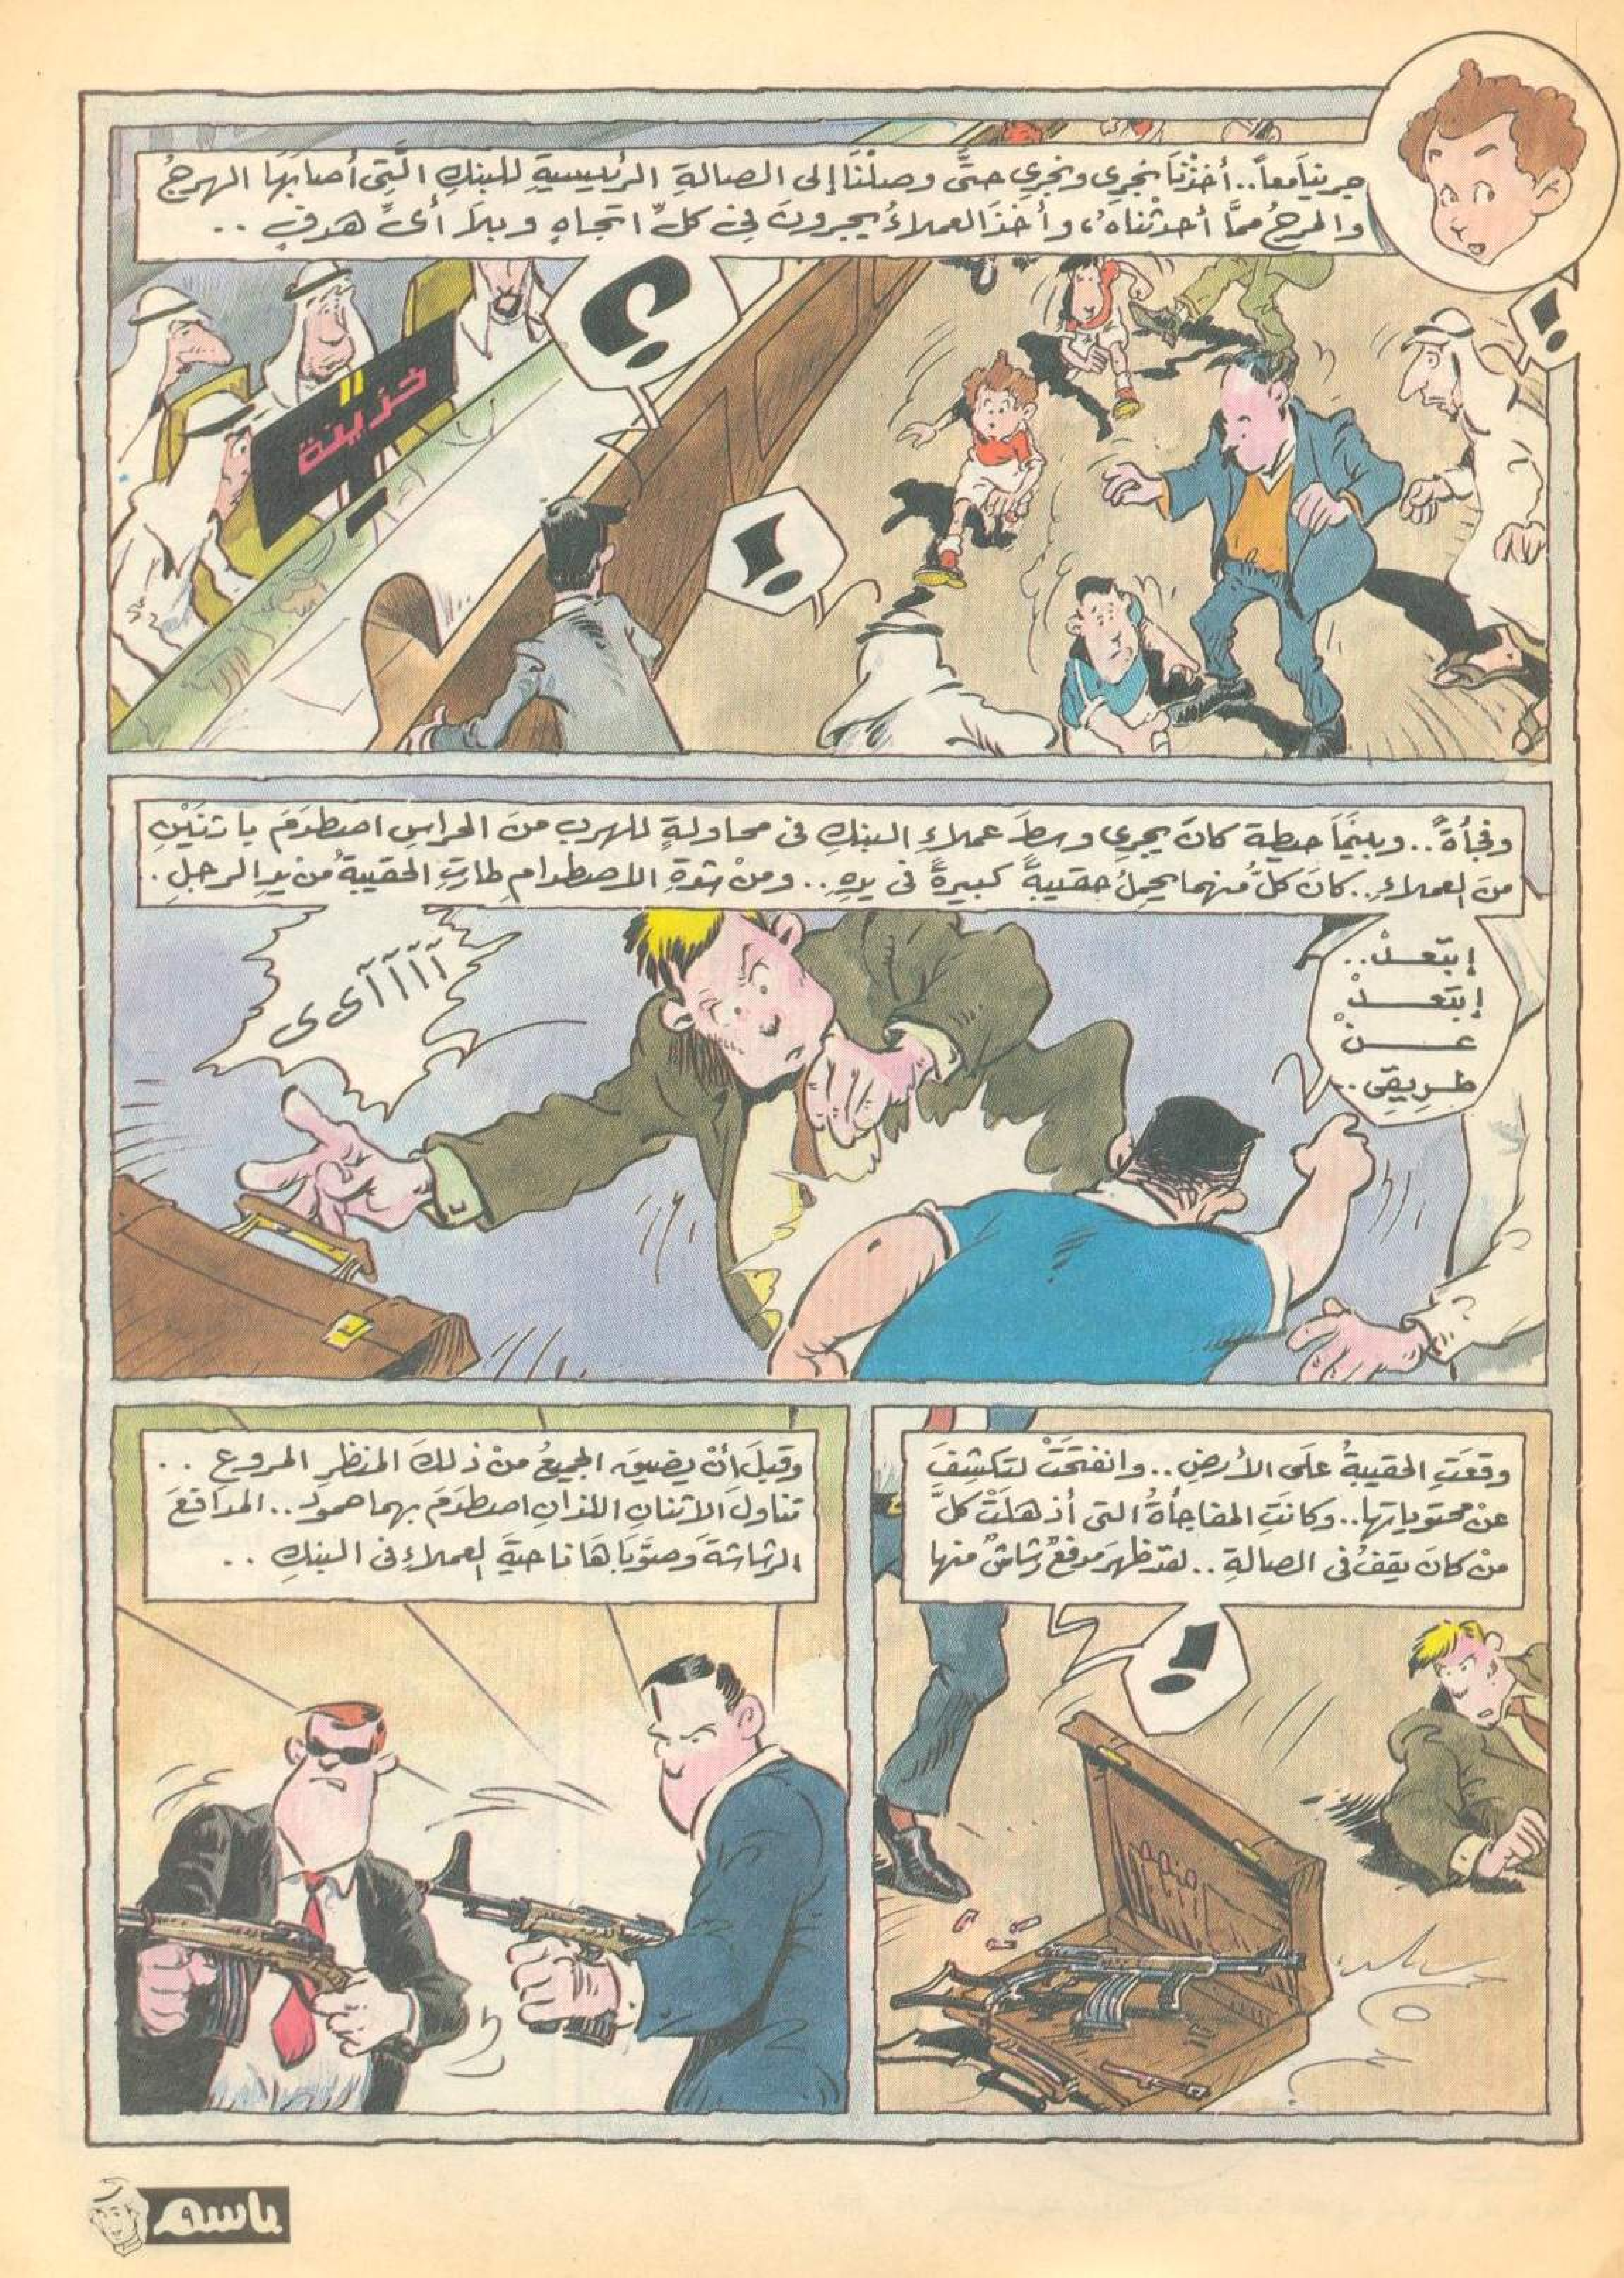 جرينا معاً.. أخذْنَا نجرِي ونجرِي حتَّى وصلْنَا إلى الصالةِ الرئيسيةِ للبنكِ الَّتِى أصابَهَا الهرجُ
والمرجُ ممَّا أحدثْناهُ، وأخذَ العملاءُ يجرونَ فِى كلِّ اتجاهٍ وبلاَ أىِّ هدفٍ ..
؟!
!
!
خزينة
وفجأةً.. وبينَما حيطة كانَ يجرِى وسطَ عملاءِ البنكِ فى محاولةٍ للهربِ منَ الحراسِ اصطدَمَ باثنَيْنِ
منَ العملاءِ.. كانَ كلٌّ منهما يحملُ حقيبةً كبيرةً فى يدِهِ.. ومنْ شدةِ الاصطدامِ طارتِ الحقيبةُ من يدِ الرجلِ.
إبتَعـــدْ..
إبتَعـــدْ
عـــنْ
طـريقِى..
آآآآى ى
وقعَتِ الحقيبةُ علَى الأرضِ.. وانفتحَتْ لتكشِفَ
عنْ محتوياتها.. وكانَتِ المفاجأةُ التى أذهلَتْ كلَّ
منْ كانَ يقفُ فى الصالةِ.. لقدْ ظهرَ مدفعٌ رشاشٌ منها
!
وقبلَ أنْ يضيقَ الجميعُ منْ ذلكَ المنظرِ المروعِ ..
تناولَ الاثنانِ اللذانِ اصطدَمَ بهما حمودْ.. المدافعَ
الرشاشةَ وصوَّبَاهَا ناحيةَ العملاءِ فى البنكِ ..
باسم